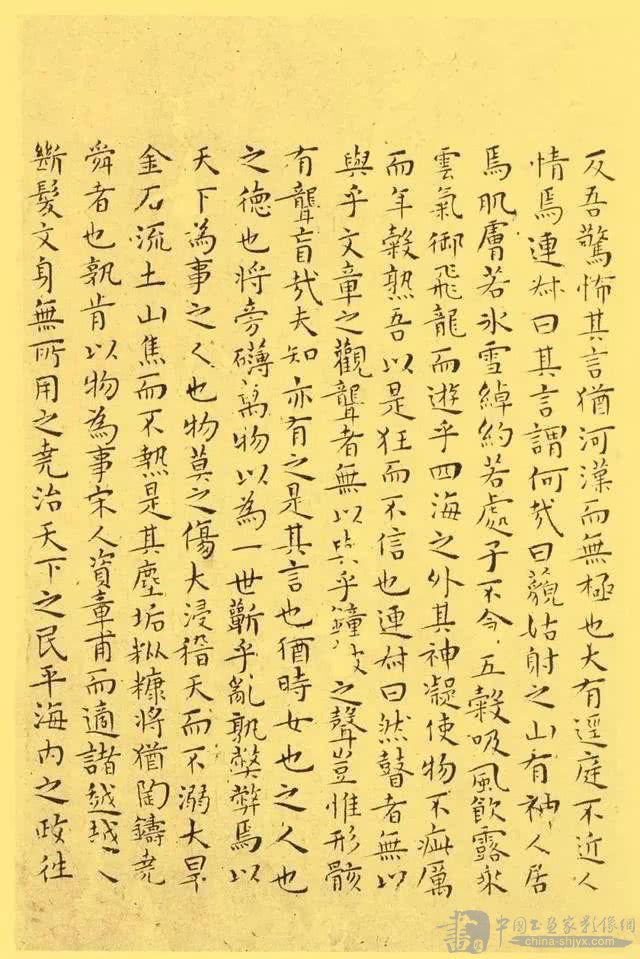 反吾驚怖其言猶河漢而無極也大有逕庭不近人
情焉連叔曰其言謂何哉曰藐姑射之山有神人居
焉肌膚若冰雪綽約若處子不食五穀吸風飲露乘
雲氣御飛龍而遊乎四海之外其神凝使物不疵厲
而年穀熟吾以是狂而不信也連叔曰然瞽者無以
與乎文章之觀聾者無以與乎鐘鼓之聲豈惟形骸
有聾盲哉夫知亦有之是其言也猶時女也之人也
之德也將旁礴萬物以為一世蘄乎亂孰弊弊焉以
天下為事之人也物莫之傷大浸稽天而不溺大旱
金石流土山焦而不熱是其塵垢粃糠將猶陶鑄堯
舜者也孰肯以物為事宋人資章甫而適諸越越人
斷髮文身無所用之堯治天下之民平海內之政往
中国书画家影像網
china-shjyx.com